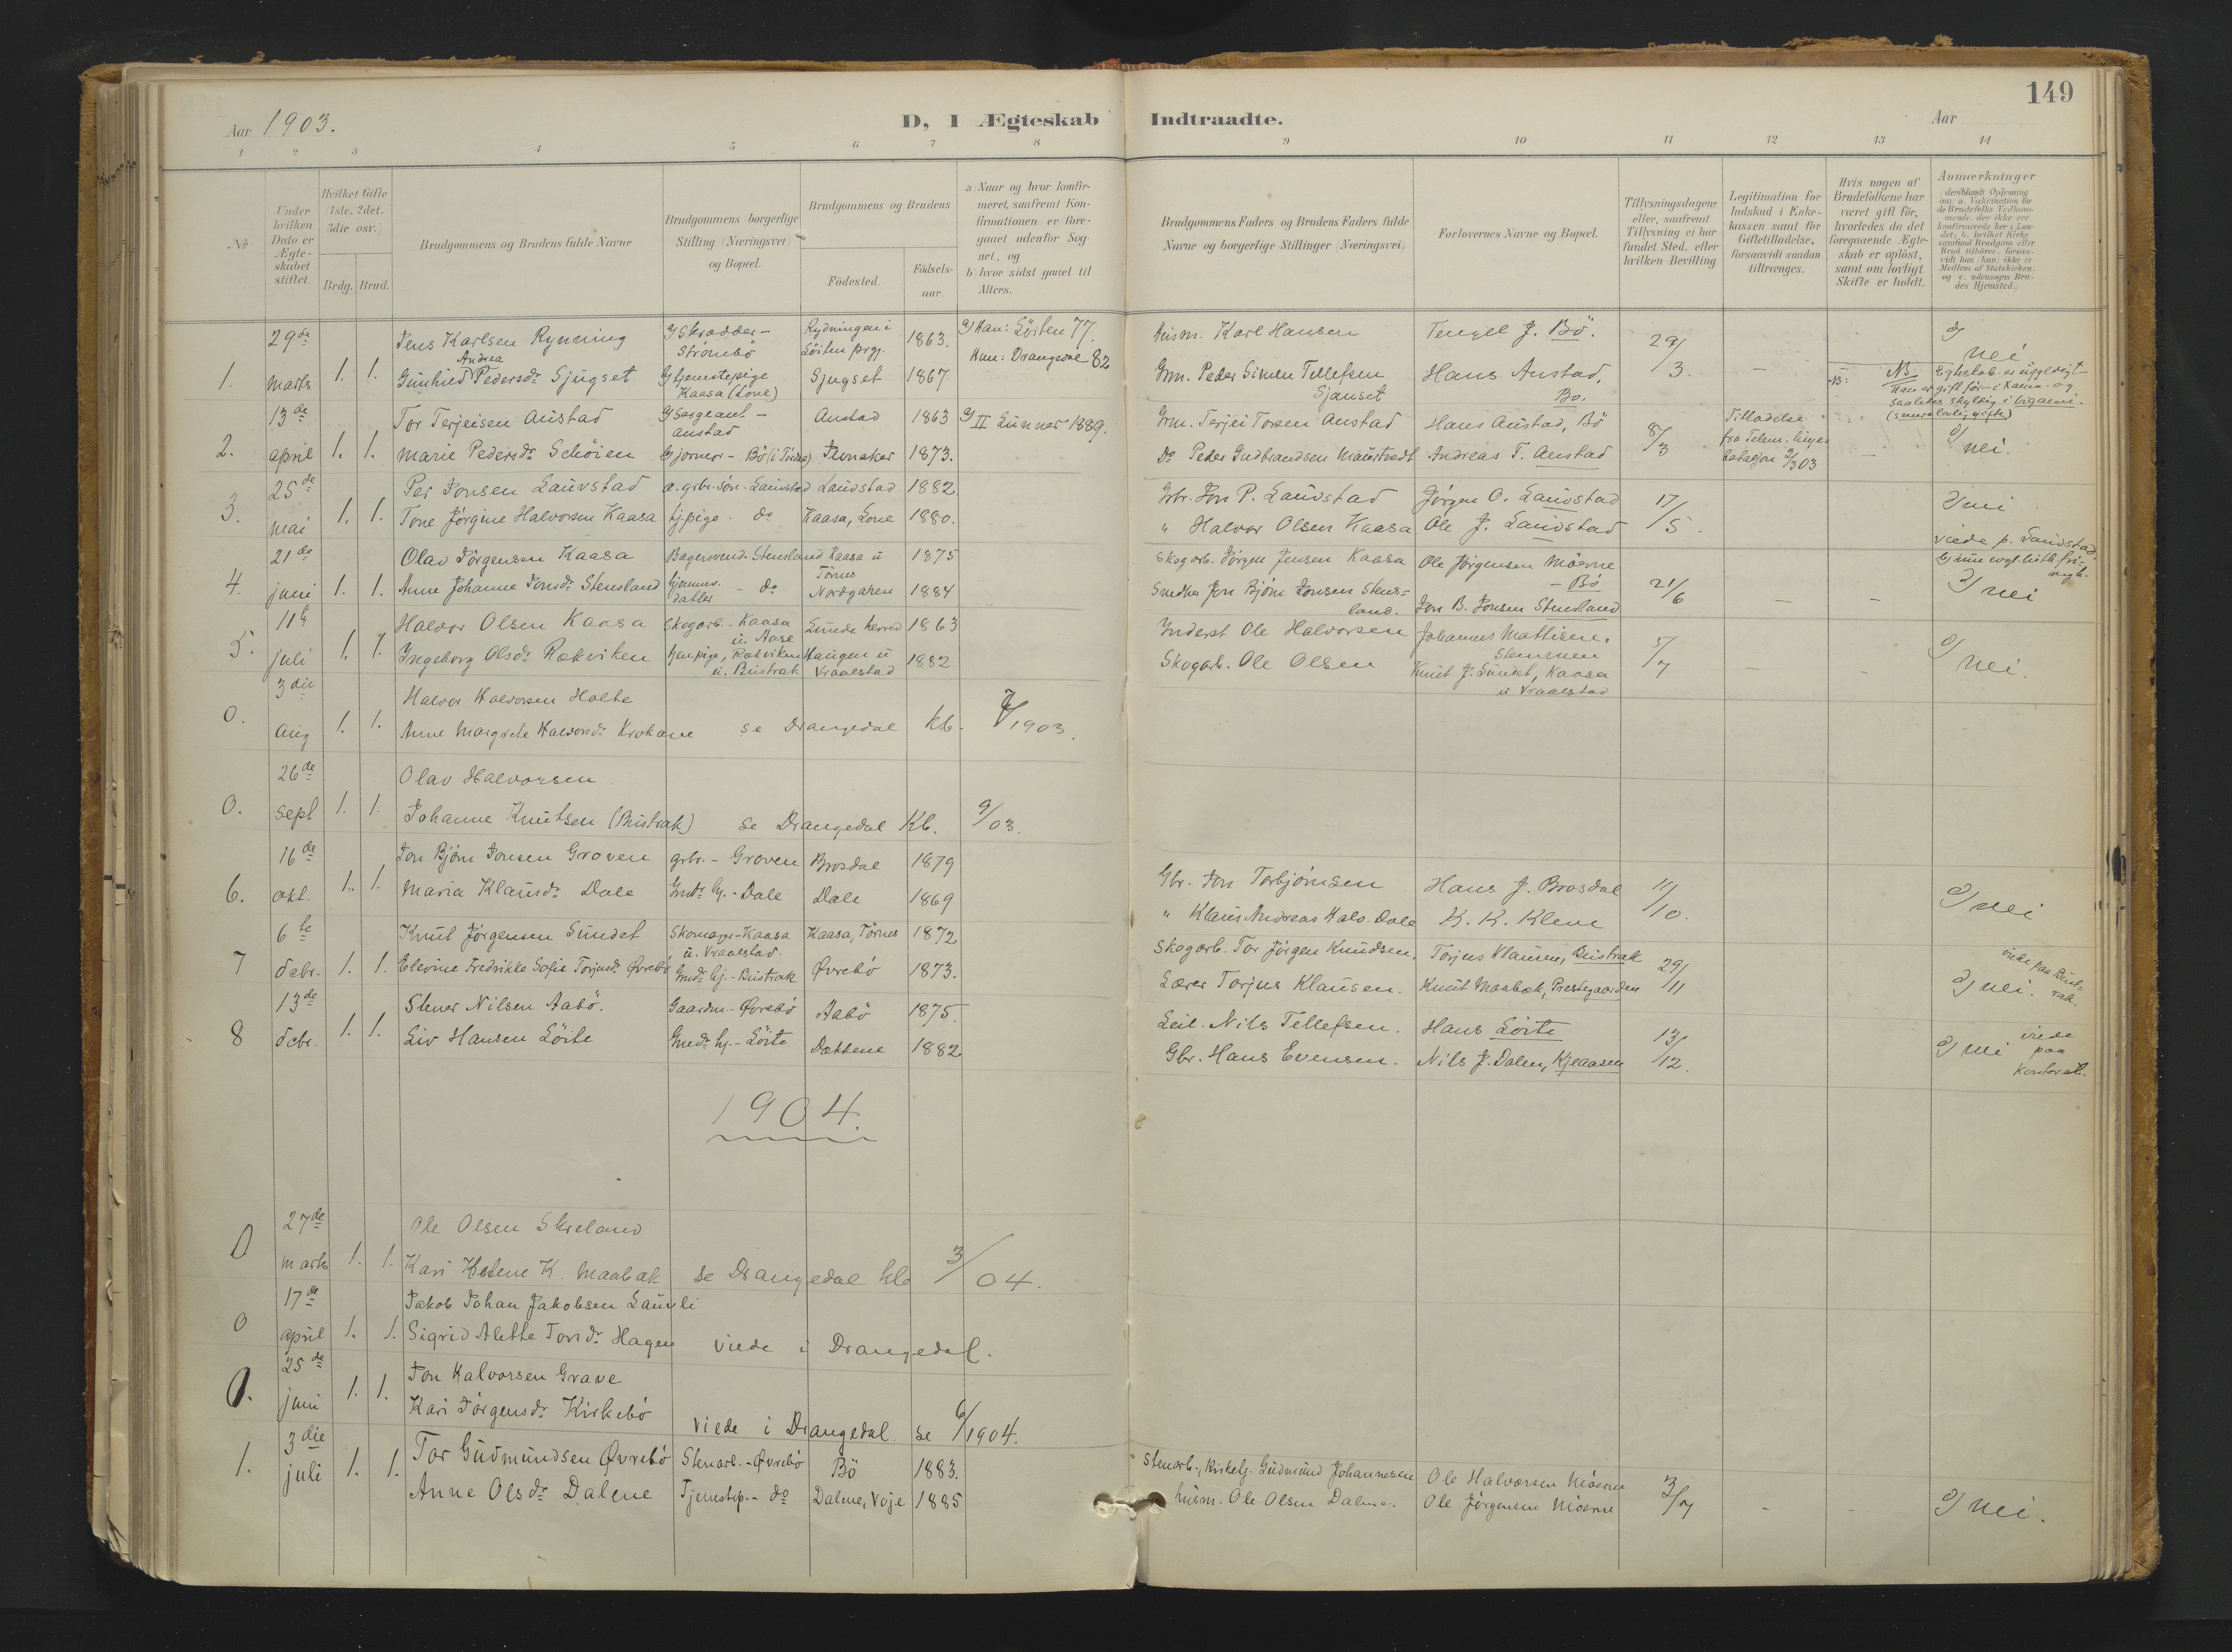 149
Aar 1903.
D, I Ægteskab Indtraadte.
Aar
1 2 3 4 5 6 7 8 9 10 11 12 13 14
No
Under hvilken Dato er Ægte-skabet stiftet.
Hvilket Gifte (1ste, 2det, 3die osv.)
Brdg. Brud.
Brudgommens og Brudens fulde Navne
Brudgommens borgerlige Stilling (Næringsvei) og Bopæl.
Brudgommens og Brudens
Födested.
Födsels-aar.
a) Naar og hvor konfir-
meret, saafremt Kon-
firmationen er fore-
gaaet udenfor Sog-
net, og
b) hvor sidst gaaet til
Alters.
Brudgommens Faders og Brudens Faders fulde
Navne og borgerlige Stillinger (Næringsvei)
Forlovernes Navne og Bopæl.
Tillysningsdagene
eller, saafremt
Tillysning ei har
fundet Sted, efter
hvilken Bevilling.
Legitimation for
Indskud i Enke-
kassen samt for
Giftetilladelse,
forsaavidt saadan
tiltrænges.
Hvis nogen af
Brudefolkene har
været gift för,
hvorledes da det
foregaaende Ægte-
skab er oplöst,
samt om lovligt
Skifte er holdt.
Anmærkninger
29de Jens Karlsen Rynning Skrædder- Strömbö Rydningen i Löiten prgj. 1863. a) Han: Löiten 77. Husm. Karl Hansen Tengel J. Bö. 29/3 nei
1. marts 1. 1. Gunhild Andrea Pedersdr Sjugset tjenestepige Kaasa (Lone) Sjugset 1867 Hun: Drangedal 82 Grm. Peder Simen Tellefsen Sjauset Hans Austad, Bö. — NB Egteskab er ugyldigt Han er gift för i Kana. og saaledes skyldig i bigami.
13de Tor Terjeisen Austad Sergeant - Austad Austad 1863 II Lunner 1889. Grm. Terjei Torsen Austad Hans Austad, Bö 8/3 Tilladelse fra Telem.
2. april 1. 1. Marie Pedersdr Schöien Gjormor - Bö Jevnaker 1873. Do Peder Gudbrandsen Andreas T. Austad 03 — nei.
25de Per Jonsen Lauvstad grbr. sön - Lauvstad Lauvstad 1882 Grbr. Jon P. Lauvstad Jörgen O. Lauvstad 17/5 nei
3. mai 1. 1. Tone Jörgine Halvorsen Kaasa tj.pige - do Kaasa, Lone 1880. " Halvor Olsen Kaasa Ole J. Lauvstad viede p. Lauvstad.
21de Olav Jörgensen Kaasa Bagersvend. Stensland Kaasa u Törnes 1875 Skogarb. Jörgen Jensen Kaasa Ole Jörgensen Möerne - Bö 21/6
4. juni 1. 1. Anne Johanne Jonsdr Stensland hjemmev. datter - do Nordgaren 1884 Smedker Jon Björn Jonsen Stens-land. Jon B. Jonsen Stensland — — nei
11te Halvor Olsen Kaasa Skogarb. - Kaasa u. Aase Lunde herred 1863 Inderst Ole Halvorsen Johannes Mattisen, Stemmen 5/7
5. juli 1. 1. Ingeborg Olsdr Rökviken tjen.pige, Rökviken u. Bustrak Haugen u Vraalstad 1882 Skogarb. Ole Olsen Knut J. Sundet, Kaasa u Vraalstad — nei.
3die Halvor Halvorsen Holte
0. aug 1. 1. Anne Margrete Halvorsdr Krokane se Drangedal kb. 7/1903.
26de Olav Halvorsen
0. sept 1. 1. Johanne Knutsen (Bustrak) se Drangedal Kb. 9/03.
16de Jon Björn Jonsen Groven grbr. - Groven Brosdal 1879 Gbr. Jon Torbjörnsen Hans J. Brosdal 11/10.
6. okt. 1. 1. Maria Klausdr Dale Gmdr hj. - Dale Dale 1869 " Klaus Andreas Halv. Dale K. K. Kleve nei
6te Knut Jörgensen Sundet Skomager - Kaasa u. Vraalstad. Kaasa, Törnes 1872 Skogarb. Tor Jörgen Knudsen. Torjus Klausen, Bustrak 29/11 viede paa Bust-rak.
7 debr. 1. 1. Elevine Fredrikke Sofie Torjusdr Øvrebö Gmdr hj. - Bustrak Øvrebö 1873. Lærer Torjus Klausen. Knut Maabæk, Prestegaarden nei.
13de Stener Nilsen Aabö. Gaardm - Øvrebö Aabö 1875. Leil. Nils Tellefsen. Hans Löite 13/12. viede paa kontoret.
8 debr. 1. 1. Liv Hansen Löite Gmdr hj. - Löite Dættene 1882 Gbr. Hans Evensen. Nils J. Dalen, Kjeaasen nei
1904.
27de Ole Olsen Skreland
0 marts 1. 1. Kari Helene K. Maabæk se Drangedal kb 3/04.
17de Jakob Johan Jakobsen Lauvli
0 april 1. 1. Sigrid Alette Torsdr Hagen viede i Drangedal.
25de Jon Halvorsen Grave
0. juni 1. 1. Kari Jörgensdr Kirkebö viede i Drangedal. se 6/1904.
3die Tor Gudmundsen Øvrebö Stenarb. - Øvrebö Bö 1883. Stenarb., Kirketj. Gudmund Johannesen Ole Halvorsen Möerne 3/7
1. juli 1. 1. Anne Olsdr Dalene Tjenestep. - do Dalene, Voje 1885 husm. Ole Olsen Dalene. Ole Jörgensen Möerne — — nei.